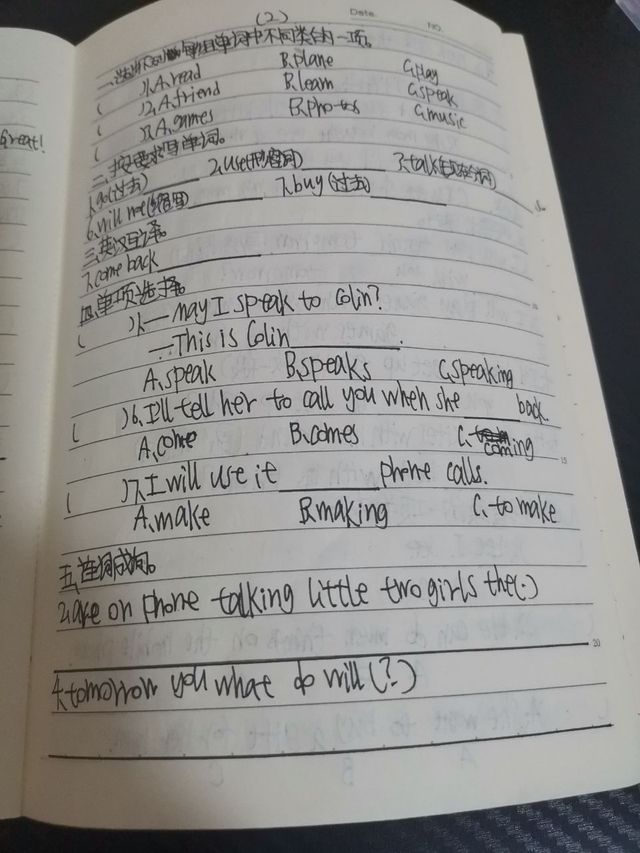 (2)
Date.
NO.
一、选出下列每组单词中不同类的一项。
( )1.A.read B.plane C.play
( )2.A.friend B.learn C.speak
( )3.A.games B.photos C.music
二、按要求写单词。
1.go(过去) 2.use(形容词) 3.talk(现在分词)
6.will not(缩写) 7.buy(过去)
三、英汉互译。
7.come back
四、单项选择。
( )1.—May I speak to Colin?
—This is Colin .
A.speak B.speaks C.speaking
( )6.I'll tell her to call you when she back.
A.come B.comes C.coming
15
( )7.I will use it phone calls.
A.make B.making C.to make
五、连词成句。
2.are on phone talking little two girls the(.)
20
4.tomorrow you what do will(?)
Great!